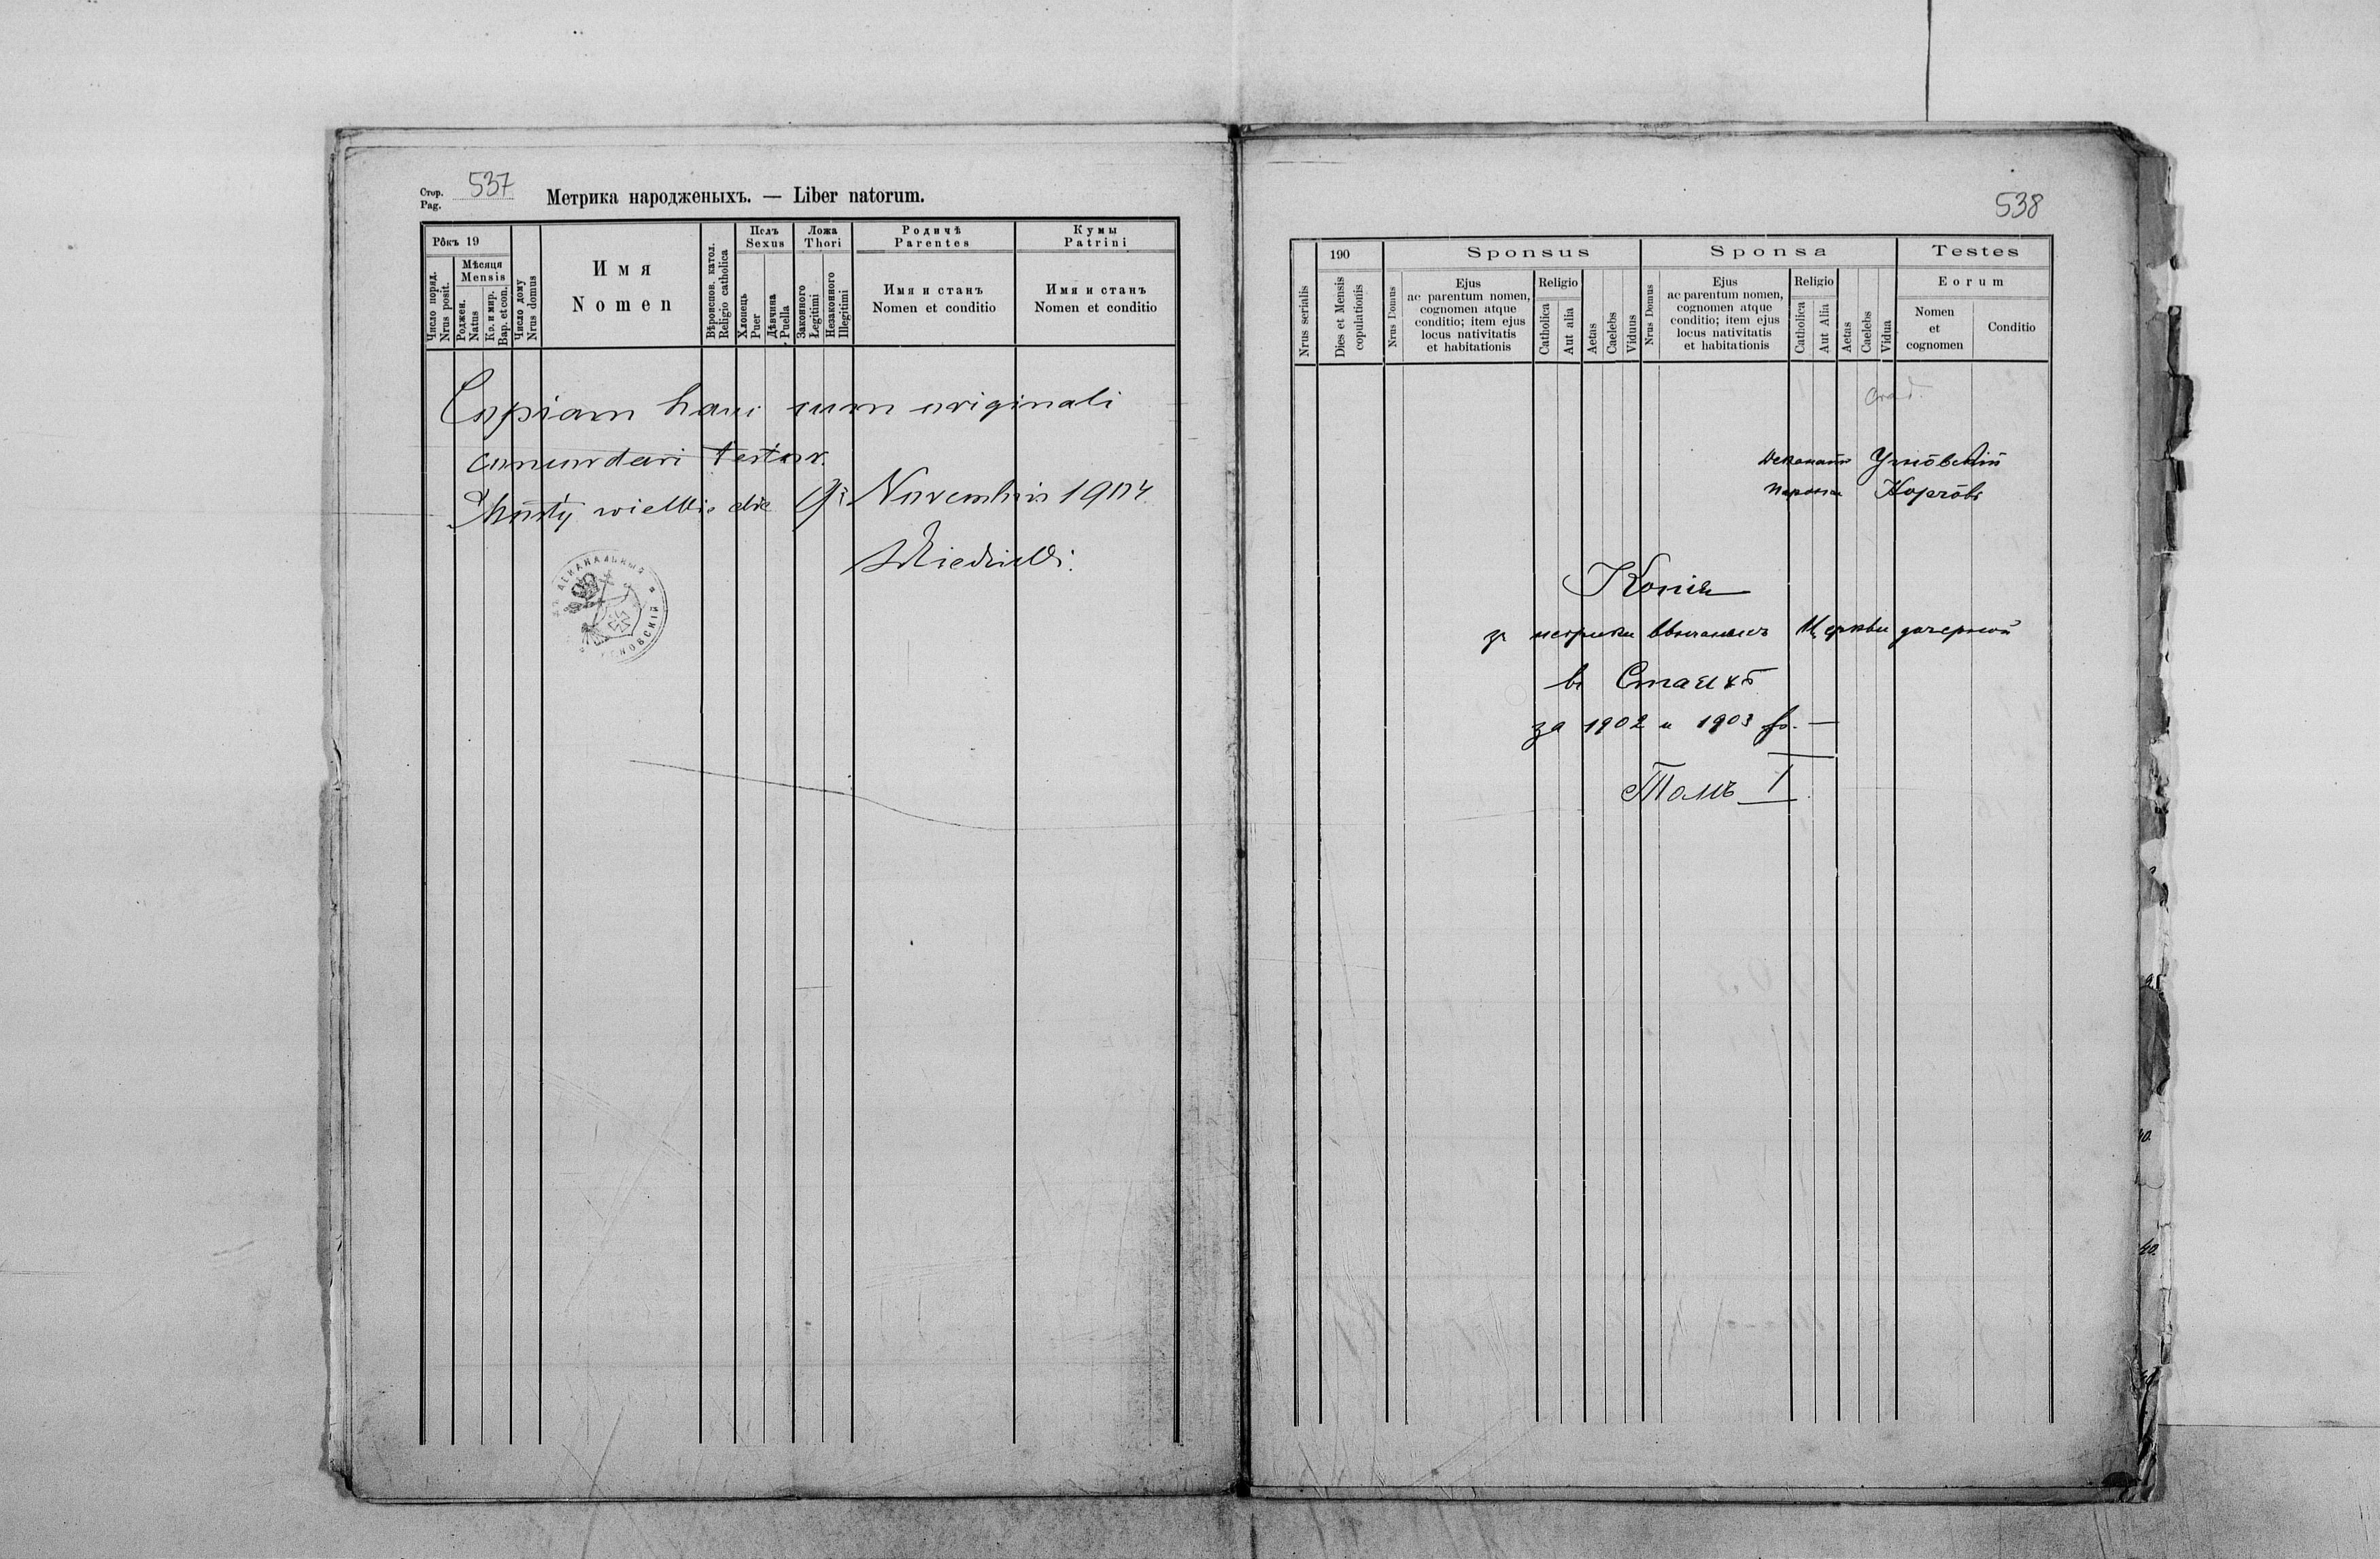 Стор. 537
Pag.
Метрика народженыхъ. — Liber natorum.
Рôкъ 19
Число поряд.
Nrus posit.
Мѣсяця
Mensis
Роджен.
Natus
Кр. и мир.
Bap. et con.
Число дому
Nrus domus
Имя
Nomen
Вѣроиспов. катол.
Religio catholica
Полъ
Sexus
Хлопець
Puer
Дѣвчина
Puella
Ложа
Thori
Законного
Legitimi
Незаконного
Illegitimi
Родичѣ
Parentes
Имя и станъ
Nomen et conditio
Кумы
Patrini
Имя и станъ
Nomen et conditio
Copiam hanc cum originali
concordari testor.
Mosty wielkie die 9 Novembris 1904.
538
Nrus serialis
190
Dies et Mensis
copulationis
Sponsus
Nrus Domus
Ejus
ac parentum nomen,
cognomen atque
conditio; item ejus
locus nativitatis
et habitationis
Religio
Catholica
Aut alia
Aetas
Caelebs
Viduus
Sponsa
Nrus Domus
Ejus
ac parentum nomen,
cognomen atque
conditio; item ejus
locus nativitatis
et habitationis
Religio
Catholica
Aut Alia
Aetas
Caelebs
Vidua
Testes
Eorum
Nomen
et
cognomen
Conditio
Деканатъ Угнôвскій
Парохія Корчôвъ
Копія
зъ метрики вѣнчаныхъ Церкви дочерной
въ Стаѣхъ
за 1902 и 1903 р. —
Томъ I